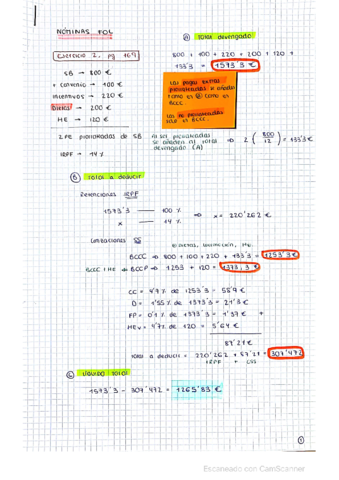 NÓMINAS FOL
Ejercicio 2, pg 169
SB → 800 €
+ convenio → 100 €
incentivos → 220 €
Dietas → 200 €
HE → 120 €
2 PE prorrateadas de SB
IRPF → 14 %
A Total devengado
800 + 100 + 220 + 200 + 120 +
133'3 = 1573'3 €
Las pagas extras
prorrateadas se añaden
tanto en A como en
BCCC
prorrateadas
se añaden al total
devengado (A)
⇒ 2 (800/12) = 133'3 €
B Total a deducir
Retenciones IRPF
1573'3 — 100 %
x — 14 %
⇒ x = 220'262 €
Cotizaciones SS
BCCC ⇒ 800 + 100 + 220 + 133'3 = 1253'3 €
BCCC + HE ⇒ BCCP ⇒ 1253 + 120 = 1373,3 €
CC = 4'7 % de 1253'3 = 58'9 €
D = 1'55 % de 1373'3 = 21'3 €
FP = 0'1 % de 1373'3 = 1'37 € +
HEv = 4'7 % de 120 = 5'64 €
87'21 €
Total a deducir = 220'262 + 87'21 = 307'472
IRPF + CSS
C Líquido total
1573'3 - 307'472 = 1265'83 €
1
Escaneado con CamScanner